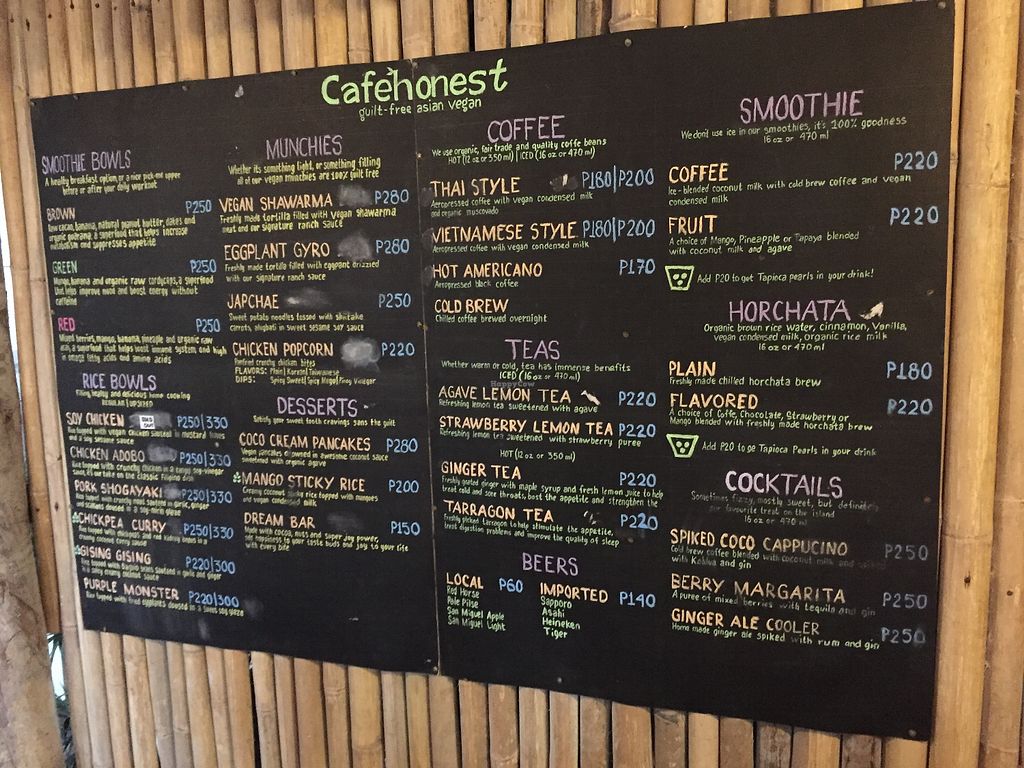 Caféhonest
guilt-free asian vegan
SMOOTHIE BOWLS
A healthy breakfast option or a nice pick-me upper
before or after your daily workout
BROWN P250
Raw cacao, banana, natural peanut butter, dates and
organic guarana, a superfood that helps increase
metabolism and suppresses appetite
GREEN P250
Mango, banana and organic raw cordyceps, a superfood
that helps improve mood and boost energy without
caffeine
RED P250
Mixed berries, mango, banana, pineapple and organic raw
acai, a superfood that helps boost immune system and high
in omega fatty acids and amino acids
RICE BOWLS
Filling, healthy and delicious home cooking
REGULAR | UPSIZED
SOY CHICKEN SOLD OUT P250|330
Rice topped with vegan chicken sauteed in mustard leaves
and a soy sesame sauce
CHICKEN ADOBO P250|330
Rice topped with crunchy chicken in a tangy soy-vinegar
sauce, it's our take on the classic Filipino dish
PORK SHOGAYAKI P250|330
Rice topped with
and scallions doused in a soy-mirin glaze
CHICKPEA CURRY P250|330
Rice topped with chickpeas and red kidney beans in a
creamy coconut curry sauce
GISING GISING P220|300
Rice topped with Baguio beans sauteed in garlic and ginger
in a spicy creamy peanut sauce
PURPLE MONSTER P220|300
Rice topped with fried eggplants doused in a sweet soy glaze
MUNCHIES
Whether its something light, or something filling
all of our vegan munchies are 100% guilt free
VEGAN SHAWARMA P280
Freshly made tortilla filled with vegan shawarma
meat and our signature ranch sauce
EGGPLANT GYRO P280
Freshly made tortilla filled with eggplant drizzled
with our signature ranch sauce
JAPCHAE P250
Sweet potato noodles tossed with shiitake
carrots, alugbati in sweet sesame soy sauce
CHICKEN POPCORN P220
Panfried crunchy chicken bites
FLAVORS: Plain | Korean | Taiwanese
DIPS: Spicy Sweet | Spicy Mayo | Pinoy Vinegar
DESSERTS
Satisfy your sweet tooth cravings sans the guilt
COCO CREAM PANCAKES P280
Vegan pancakes drowned in awesome coconut sauce
sweetened with organic agave
MANGO STICKY RICE P200
Creamy coconut sticky rice topped with mangoes
and vegan condensed milk
DREAM BAR P150
Made with cocoa, nuts and super joy power,
see happiness to your taste buds and joy to your life
with every bite
COFFEE
We use organic, fair trade and quality coffe beans
HOT (12 oz or 350 ml) | ICED (16 oz or 470 ml)
THAI STYLE P180|P200
Aeropressed coffee with vegan condensed milk
and organic muscovado
VIETNAMESE STYLE P180|P200
Aeropressed coffee with vegan condensed milk
HOT AMERICANO P170
Aeropressed black coffee
COLD BREW
Chilled coffee brewed overnight
TEAS
Whether warm or cold, tea has immense benefits
ICED (16 oz or 470 ml)
HappyCow
AGAVE LEMON TEA P220
Refreshing lemon tea sweetened with agave
STRAWBERRY LEMON TEA P220
Refreshing lemon tea sweetened with strawberry puree
HOT (12 oz or 350 ml)
GINGER TEA P220
Freshly grated ginger with maple syrup and fresh lemon juice to help
treat cold and sore throats, bost the appetite and strengthen the
TARRAGON TEA P220
Freshly picked tarragon to help stimulate the appetite,
treat digestion problems and improve the quality of sleep
BEERS
LOCAL P60
Red Horse
Pale Pilse
San Miguel Apple
San Miguel Light
IMPORTED P140
Sapporo
Asahi
Heineken
Tiger
SMOOTHIE
We don't use ice in our smoothies, it's 100% goodness
16 oz or 470 ml
COFFEE P220
Ice-blended coconut milk with cold brew coffee and vegan
condensed milk
FRUIT P220
A choice of Mango, Pineapple or Papaya blended
with coconut milk and agave
Add P20 to get Tapioca pearls in your drink!
HORCHATA
Organic brown rice water, cinnamon, Vanilla,
vegan condensed milk, organic rice milk
16 oz or 470 ml
PLAIN P180
Freshly made chilled horchata brew
FLAVORED P220
A choice of Coffe, Chocolate, Strawberry or
Mango blended with freshly made horchata brew
Add P20 to ge Tapioca Pearls in your drink
COCKTAILS
Sometimes fizzy, mostly sweet, but definitely
our favourite treat on the island
16 oz or 470 ml
SPIKED COCO CAPPUCINO P250
Cold brew coffee blended with coconut milk and spiked
with Kahlua and gin
BERRY MARGARITA P250
A puree of mixed berries with tequila and gin
GINGER ALE COOLER P250
Home made ginger ale spiked with rum and gin